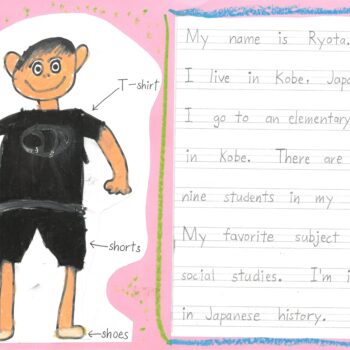 T-shirt
shorts
shoes
My name is Ryota.
I live in Kobe,
I go to an elementary
in Kobe. There are
nine students in my
My favorite subject
social studies. I'm
in Japanese history.